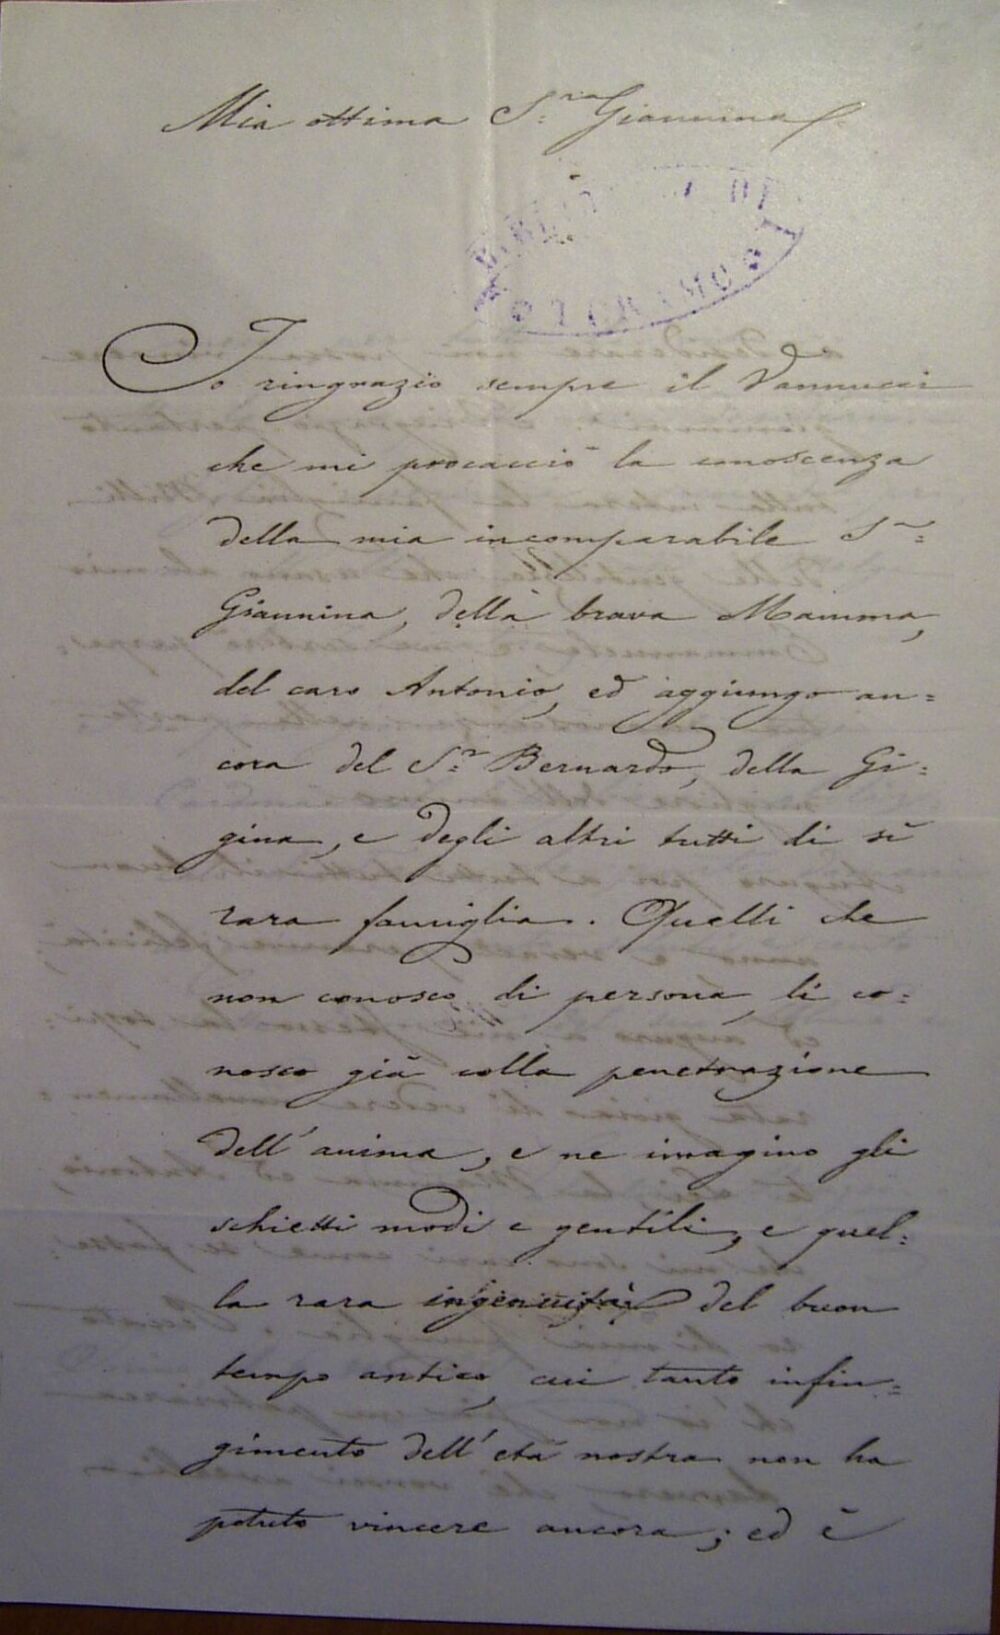 Mia ottima S.ra Giannina
BIBLIO DI
TERAMO
Io ringrazio sempre il Vannucci
che mi procacciò la conoscenza
della mia incomparabile S.ra
Giannina, della brava Mamma,
del caro Antonio, ed aggiungo an=
cora del S.r Bernardo, della Gi=
gina, e degli altri tutti di sì
rara famiglia. Quelli che
non conosco di persona, li co=
nosco già colla penetrazione
dell'anima, e ne imagino gli
schietti modi e gentili, e quel=
la rara ingenuità del buon
tempo antico, cui tanto infin=
gimento dell'età nostra non ha
potuto vincere ancora; ed è